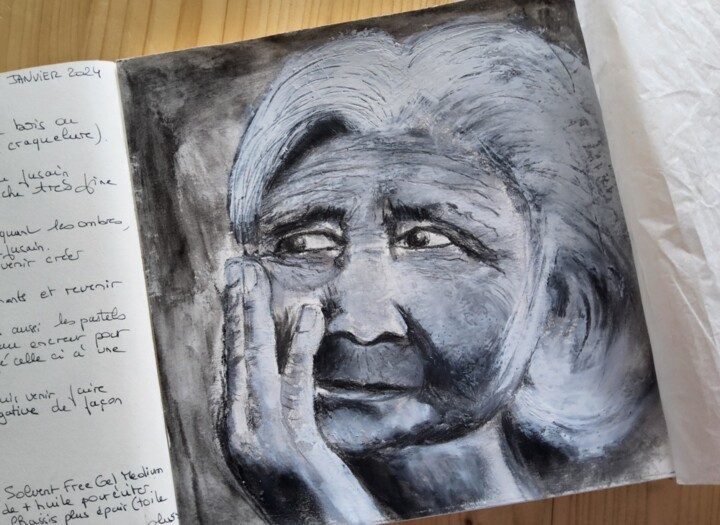 JANVIER 2024
bois ou
craquelure).
fusain
che très fine
quant les ombres,
fusain.
venir créer
ents et revenir
aussi les pastels
au encreur pour
é celle ci à une
uis venir faire
gative de façon
Solvent Free Gel Medium
de + huile pour éviter
Chassis plus épais (toile
plus